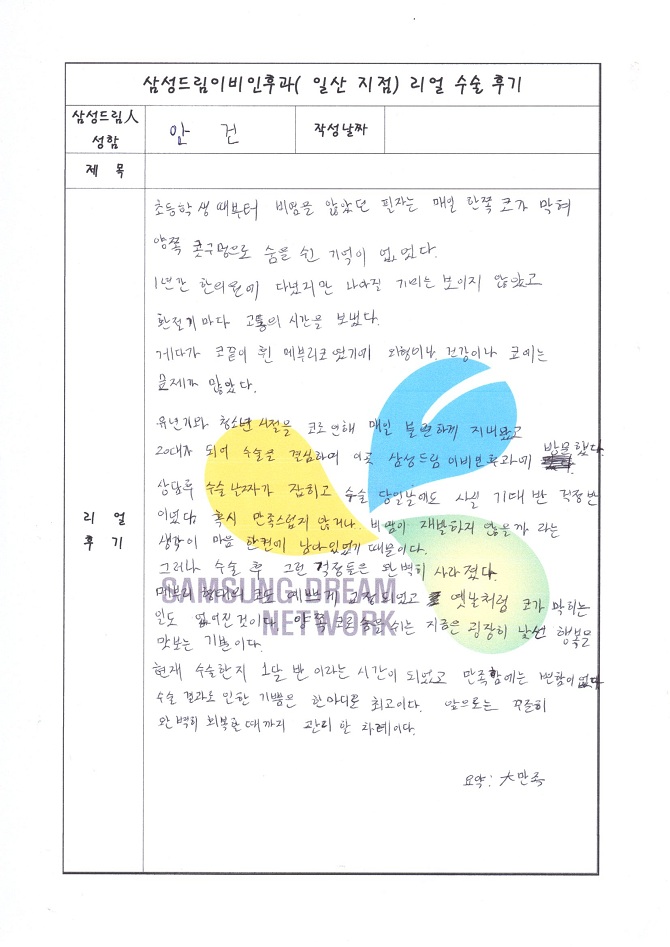 삼성드림이비인후과( 일산 지점) 리얼 수술 후기
삼성드림人
성함
안 건
작성날짜
제 목
리 얼
후 기
초등학생때부터 비염을 앓았던 필자는 매일 한쪽 코가 막혀
양쪽 콧구멍으로 숨을 쉰 기억이 없었다.
1년간 한의원에 다녔지만 나아질 기미는 보이지 않았고
환절기마다 고통의 시간을 보냈다.
게다가 코끝이 휜 메부리코였기에 외형이나 건강이나 코에는
문제가 많았다.
유년기와 청소년시절을 코로인해 매일 불편하게 지내왔고
20대가 되어 수술을 결심하며 이곳 삼성드림이비인후과에 방문했다.
상담후 수술날짜가 잡히고 수술 당일날에도 사실 기대 반 걱정 반
이었다. 혹시 만족스럽지 않거나 비염이 재발하지 않을까 라는
생각이 마음 한켠에 남아있었기 때문이다.
그러나 수술 후 그런 걱정들은 완벽히 사라졌다.
메부리 형태의 코도 예쁘게 교정되었고 옛날처럼 코가 막히는
일도 없어진것이다. 양쪽 코로 숨을 쉬는 지금은 굉장히 낯선 행복을
맛보는 기분이다.
현재 수술한지 1달 반 이라는 시간이 되었고 만족함에는 변함이 없다.
수술 결과로 인한 기쁨은 한마디로 최고이다. 앞으로는 꾸준히
완벽히 회복할때까지 관리 할 차례이다.
요약: 大만족
SAMSUNG DREAM
NETWORK